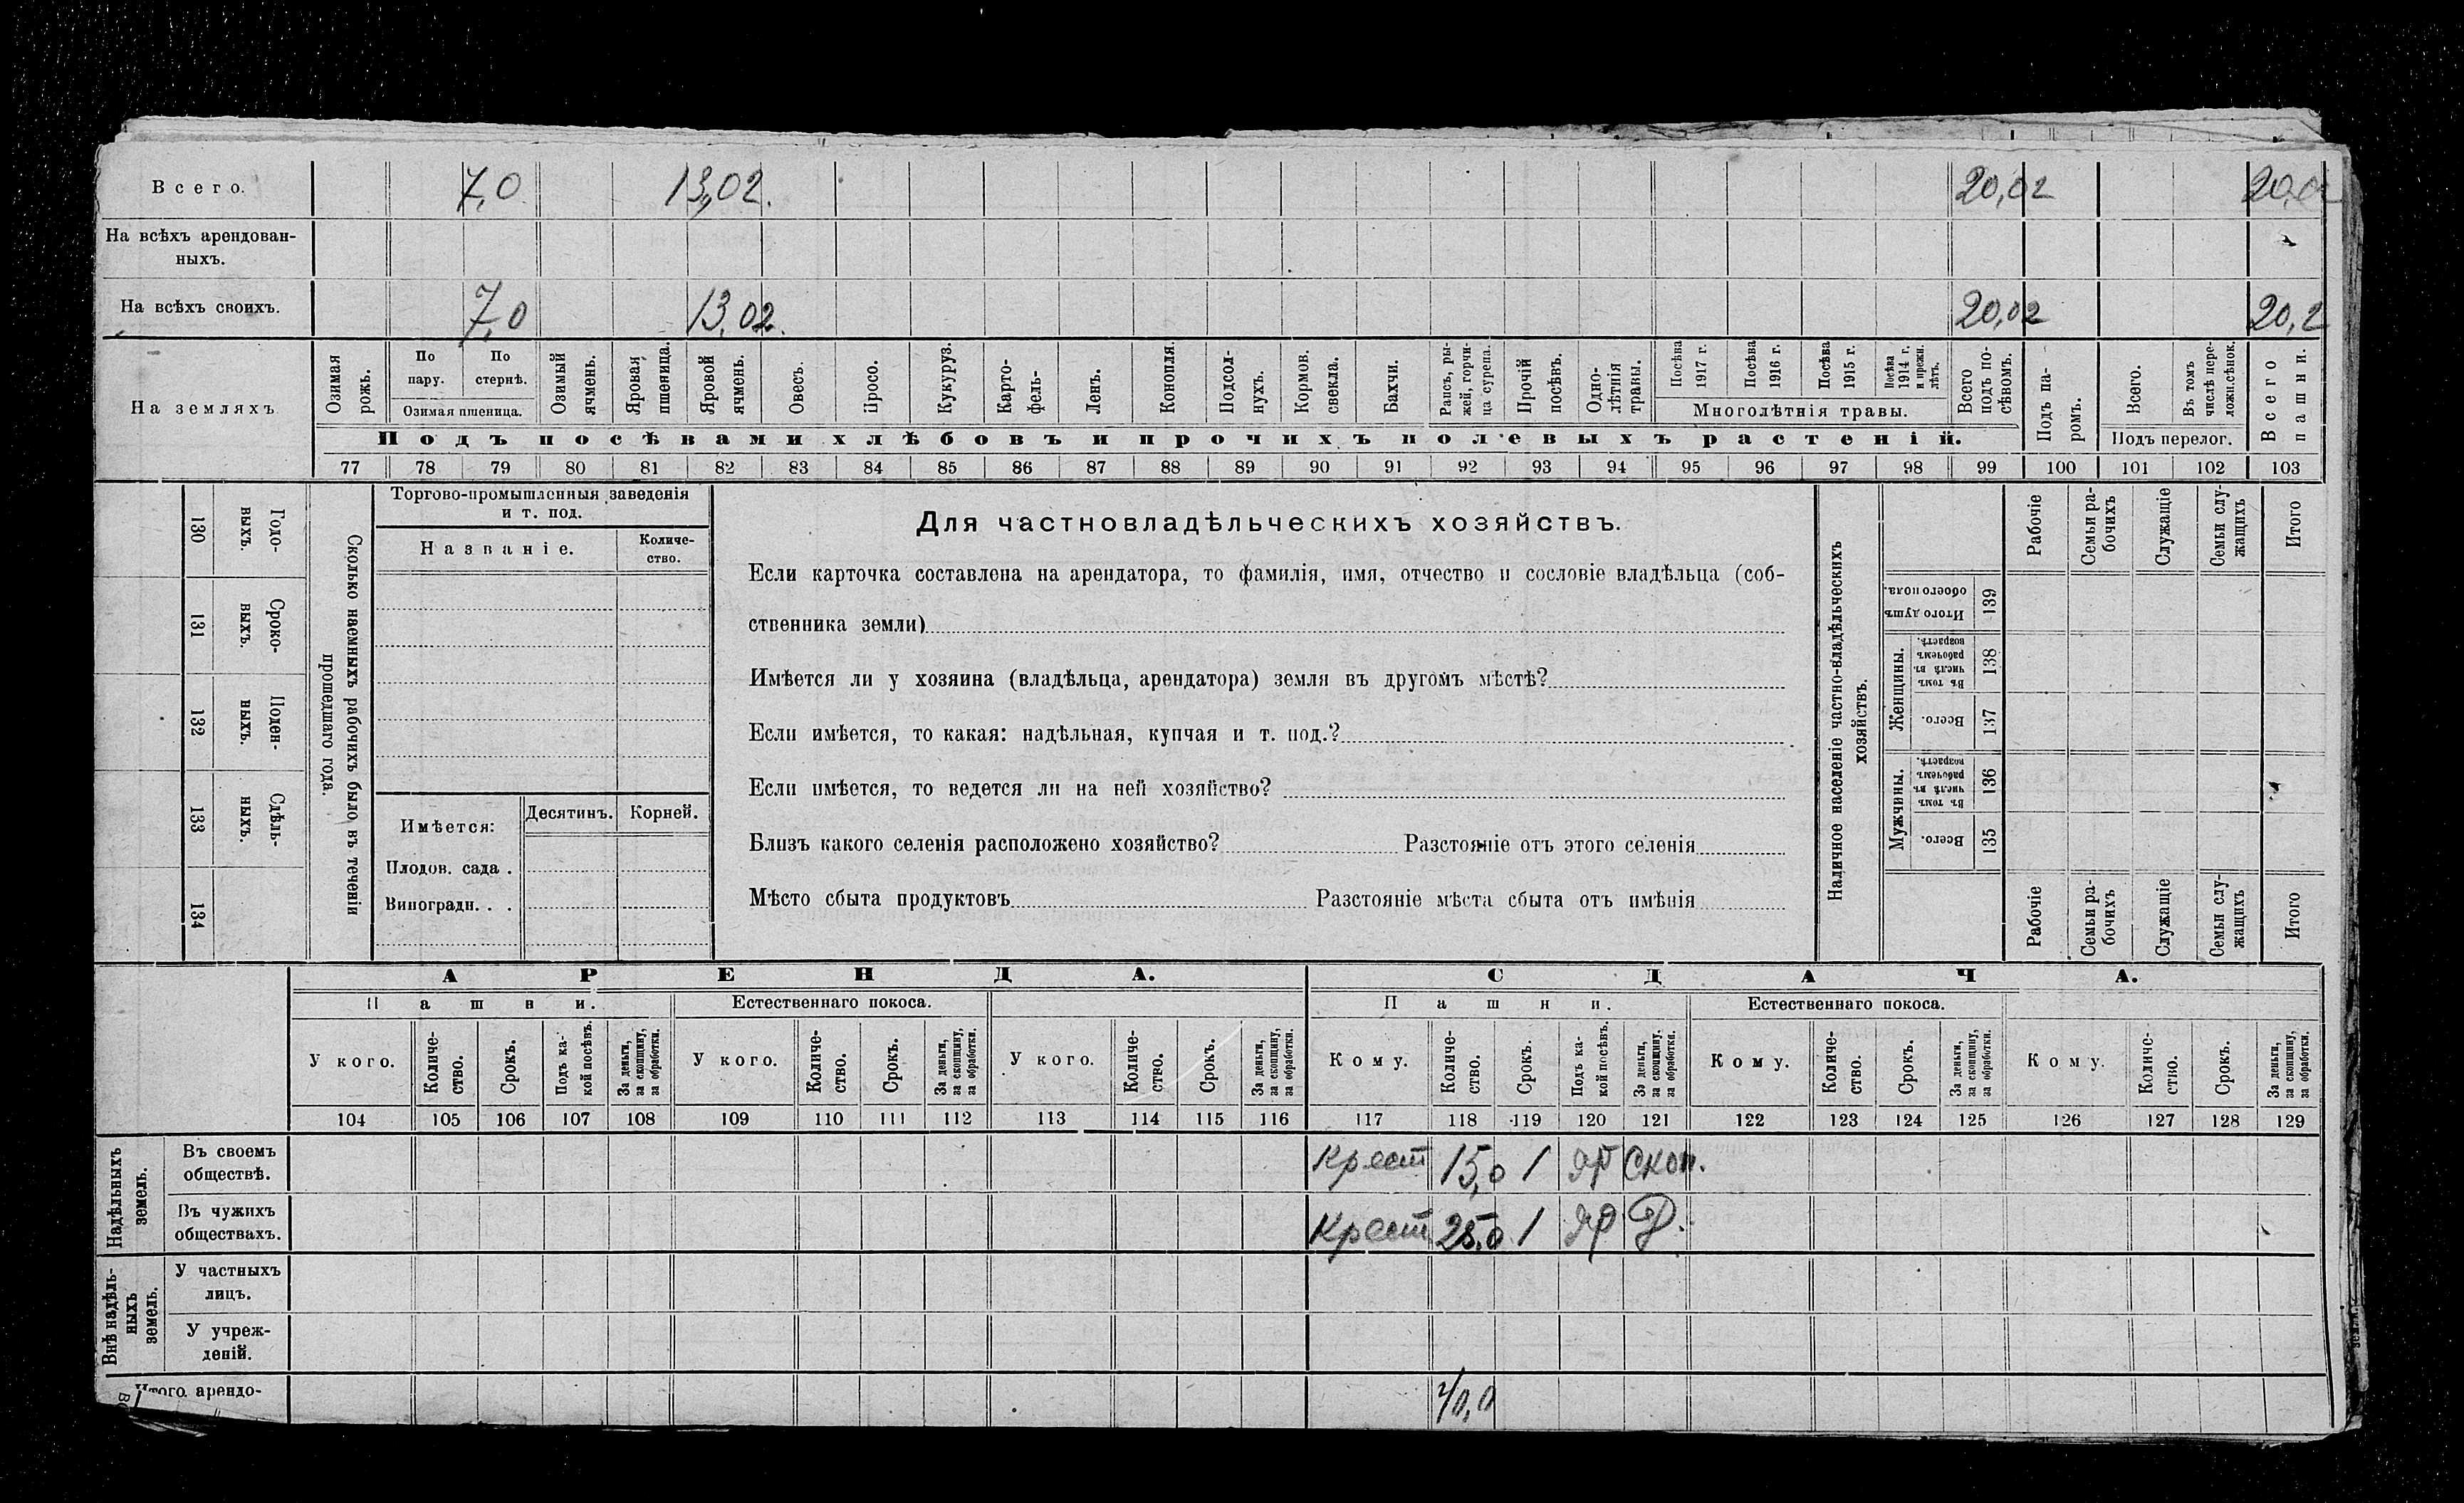 Всего. 7,0 13,02. 20,02 20,02
На всѣхъ арендован-
ныхъ.
На всѣхъ своихъ. 7,0 13,02. 20,02 20,2
На земляхъ
Озимая рожь.
По пару.
По стернѣ.
Озимая пшеница.
Озимый ячмень.
Яровая пшеница.
Яровой ячмень.
Овесъ.
Просо.
Кукуруз.
Карто-
фель-
Ленъ.
Конопля.
Подсол-
нухъ.
Кормов. свекла.
Бахчи.
Рапсъ, ры-
жей, горчи-
ца сурепа.
Прочій посѣвъ.
Одно-
лѣтнія травы.
Посѣва 1917 г.
Посѣва 1916 г.
Посѣва 1915 г.
Посѣва 1914 г. и прежн. лѣтъ.
Многолѣтнія травы.
Всего подъ по-
сѣвомъ.
Подъ па-
ромъ.
Всего.
Въ томъ числѣ пере-
лож.сѣнок.
Подъ перелог.
Всего пашни.
Подъ посѣвами хлѣбовъ и прочихъ полевыхъ растеній.
77 78 79 80 81 82 83 84 85 86 87 88 89 90 91 92 93 94 95 96 97 98 99 100 101 102 103
130 Годо-
выхъ.
131 Сроко-
выхъ.
132 Поден-
ныхъ.
133 Сдѣль-
ныхъ.
134
Сколько наемныхъ рабочихъ было въ теченіи
прошедшаго года.
Торгово-промышленныя заведенія
и т. под.
Названіе.
Количе-
ство.
Имѣется:
Десятинъ. Корней.
Плодов. сада .
Виноградн. . .
Для частновладѣльческихъ хозяйствъ.
Если карточка составлена на арендатора, то фамилія, имя, отчество и сословіе владѣльца (соб-
ственника земли)
Имѣется ли у хозяина (владѣльца, арендатора) земля въ другомъ мѣстѣ?
Если имѣется, то какая: надѣльная, купчая и т. под.?
Если имѣется, то ведется ли на ней хозяйство?
Близъ какого селенія расположено хозяйство? Разстояніе отъ этого селенія
Мѣсто сбыта продуктовъ Разстояніе мѣста сбыта отъ имѣнія
Наличное населеніе частно-владѣльческихъ
хозяйствъ.
Рабочіе
Семьи ра-
бочихъ
Служащіе
Семьи слу-
жащихъ
Итого
Итого душъ
обоего пола.
139
Женщины.
Въ томъ
числѣ въ
рабочемъ
возрастѣ.
138
Всего.
137
Мужчины.
Въ томъ
числѣ въ
рабочемъ
возрастѣ.
136
Всего.
135
Рабочіе
Семьи ра-
бочихъ
Служащіе
Семьи слу-
жащихъ
Итого
АРЕНДА. СДАЧА.
Пашни. Естественнаго покоса. Пашни. Естественнаго покоса.
У кого.
Количе-
ство.
Срокъ.
Подъ ка-
кой посѣвъ.
За деньги,
за скопщину,
за обработки.
У кого.
Количе-
ство.
Срокъ.
За деньги,
за скопщину,
за обработки.
У кого.
Количе-
ство.
Срокъ.
За деньги,
за скопщину,
за обработки.
Кому.
Количе-
ство.
Срокъ.
Подъ ка-
кой посѣвъ.
За деньги,
за скопщину,
за обработки.
Кому.
Количе-
ство.
Срокъ.
За деньги,
за скопщину,
за обработки.
Кому.
Количе-
ство.
Срокъ.
За деньги,
за скопщину,
за обработки.
104 105 106 107 108 109 110 111 112 113 114 115 116 117 118 119 120 121 122 123 124 125 126 127 128 129
Надѣльныхъ
земель.
Въ своемъ
обществѣ.
Крест 15,0 1 яр Скоп.
Въ чужихъ
обществахъ.
Крест 25,0 1 яр Д.
Внѣ надѣль-
ныхъ
земель.
У частныхъ
лицъ.
У учреж-
деній.
Итого арендо-
40,0